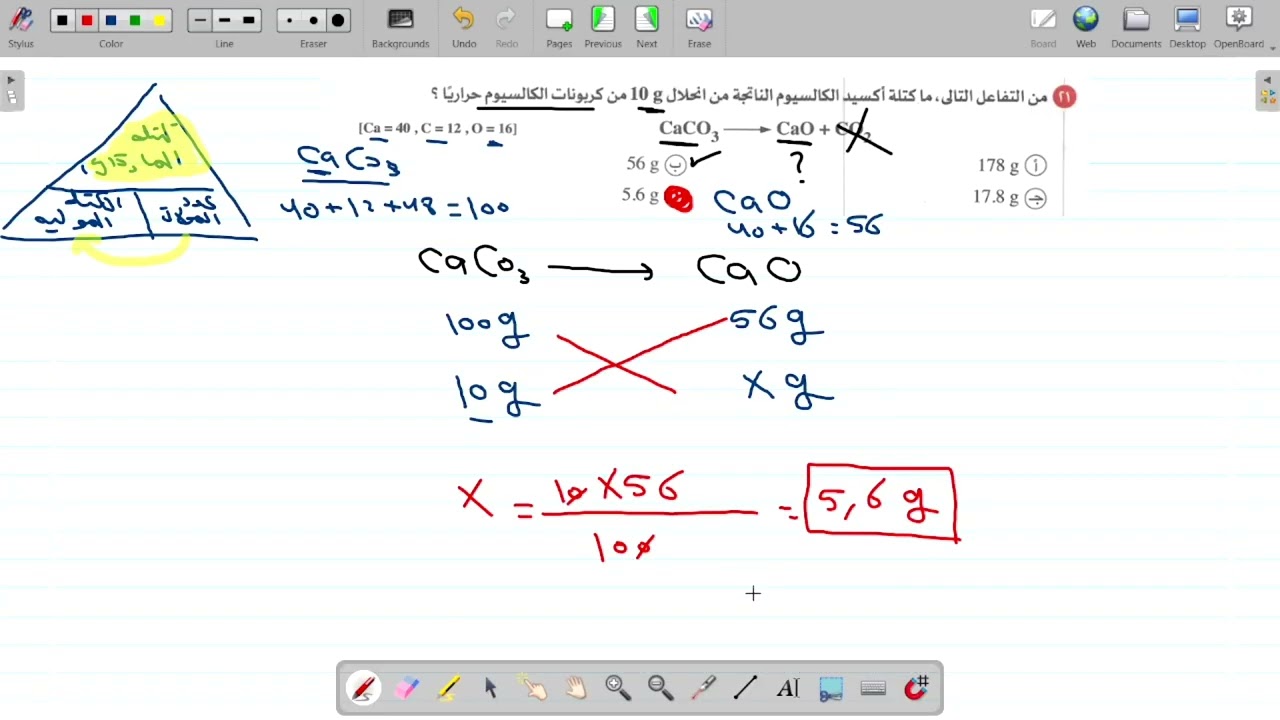 Stylus Color Line Eraser Backgrounds Undo Redo Pages Previous Next Erase Board Web Documents Desktop OpenBoard
٢١ من التفاعل التالى، ما كتلة أكسيد الكالسيوم الناتجة من انحلال 10 g من كربونات الكالسيوم حراريًا ؟
[Ca = 40 , C = 12 , O = 16]
CaCO₃ ⟶ CaO + CO₂
أ 178 g
ب 56 g
ج 17.8 g
5.6 g
?
كتلة
المادة g
الكتلة المولية
عدد المولات
CaCO₃
40+12+48=100
CaO
40+16=56
CaCO₃ ⟶ CaO
100g 56g
10g X g
X = 10X56 / 100 = 5,6 g
AI